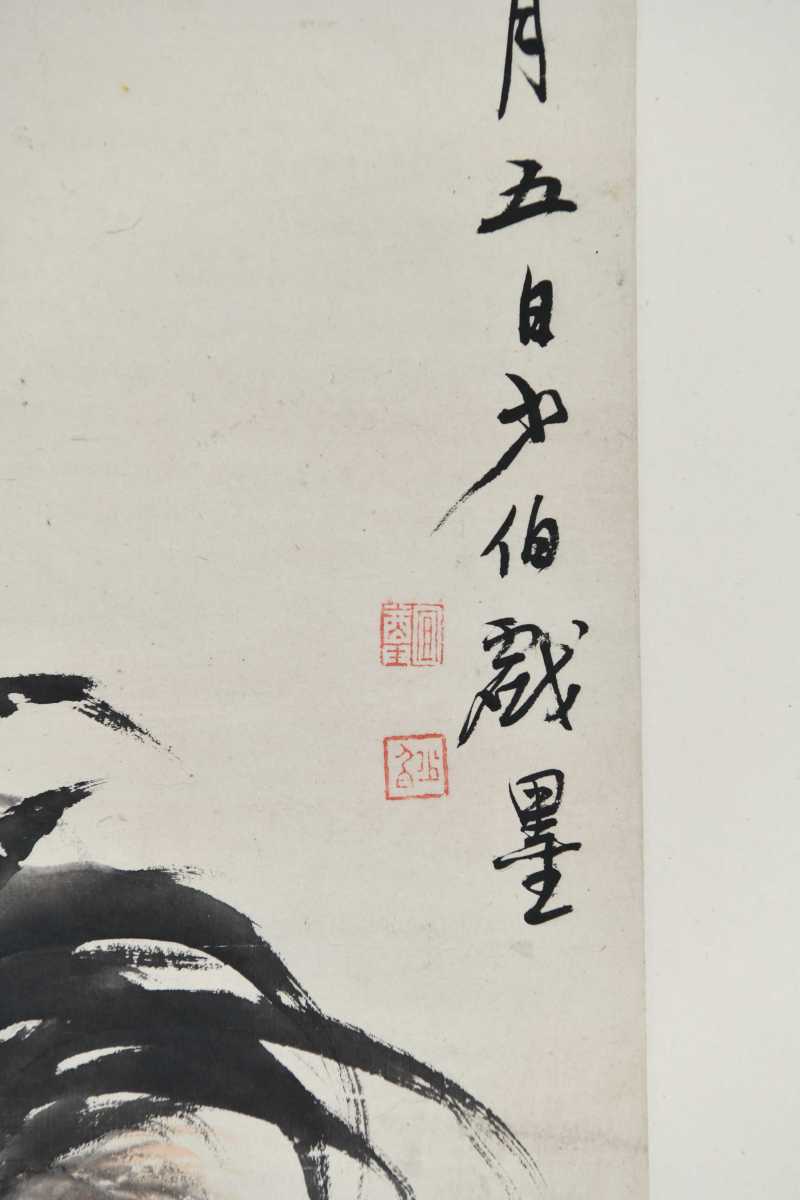 月五日少伯戲墨